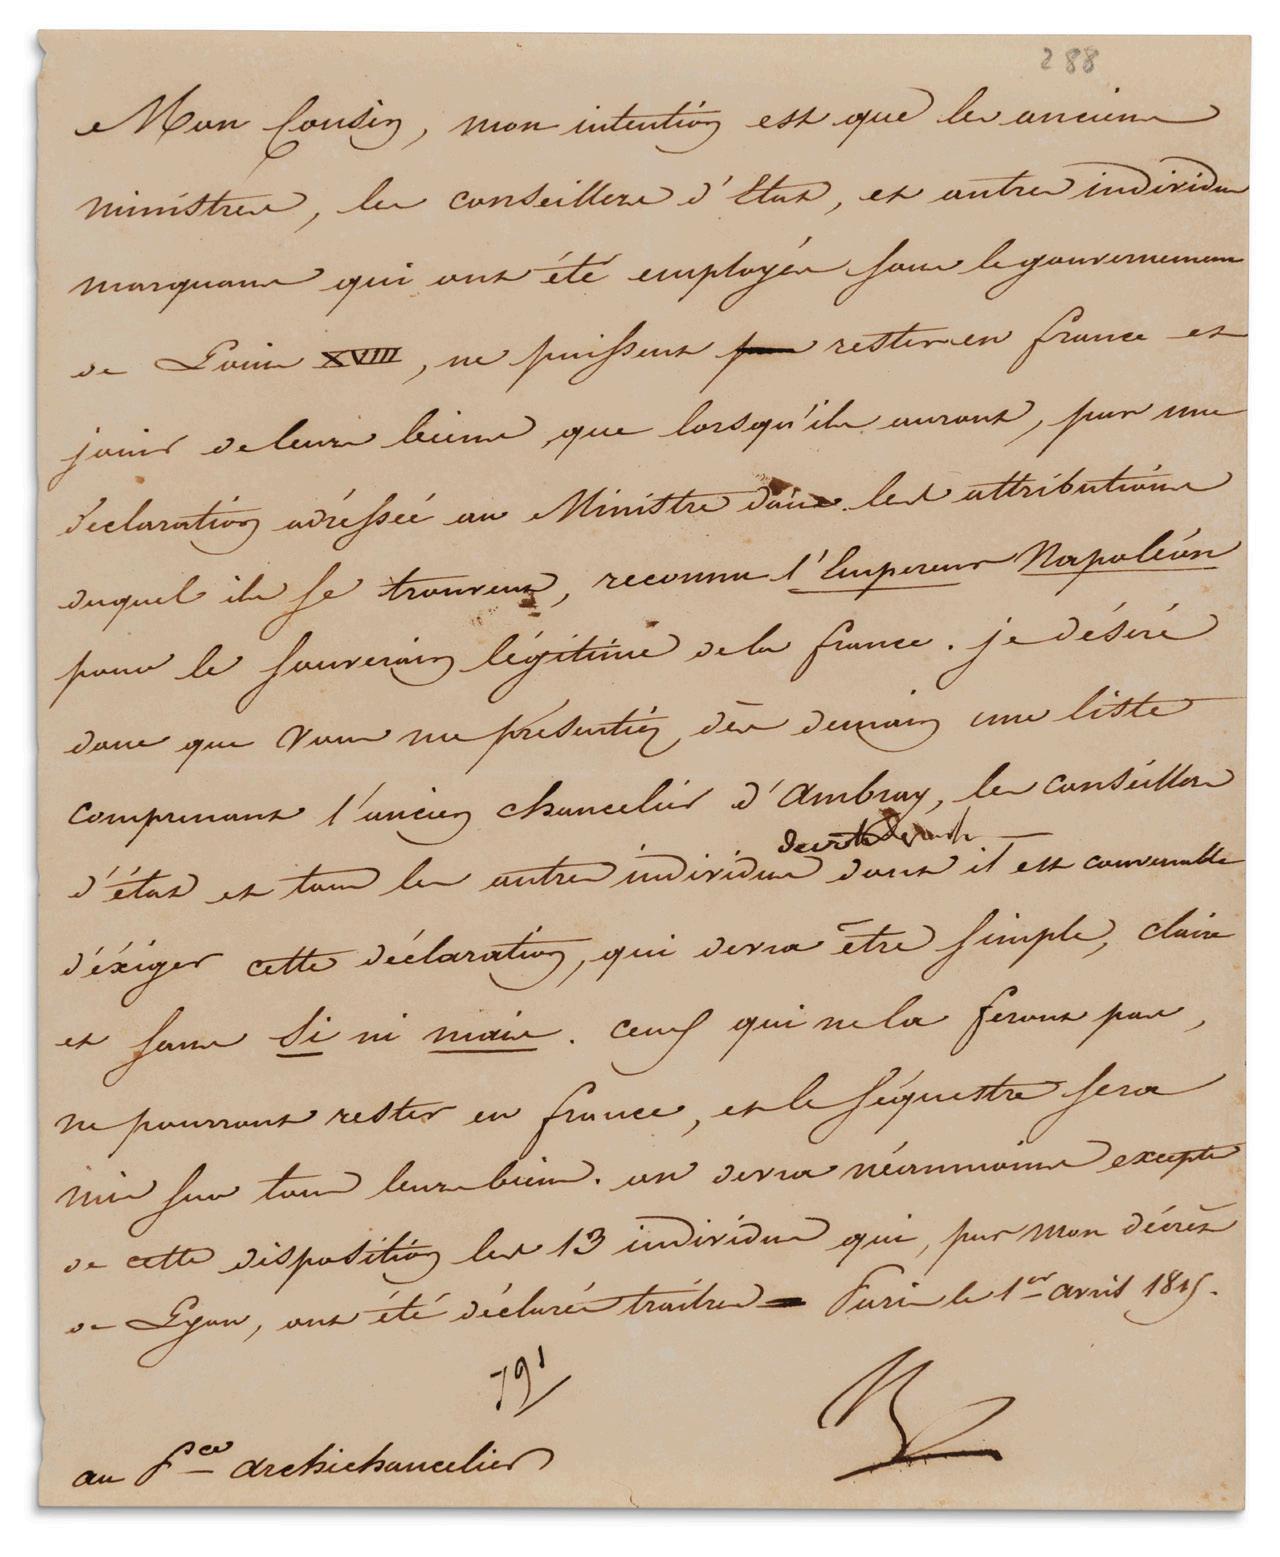 288
Mon Cousin, mon intention est que les anciens
ministres, les conseillers d'Etat, et autres individus
marquans qui ont été employés sous le gouvernement
de Louis XVIII, ne puissent pas rester en france et
jouir de leurs biens que lorsqu'ils auront, par une
déclaration adréssée au Ministre dans les attributions
duquel ils se trouvent, reconnu l'Empereur Napoléon
pour le souverain légitime de la france. je désire
donc que vous me présentiez, dès demain une liste
comprenant l'ancien chancelier d'Ambray, les conseillers
d'état et tous les autres individus dont il est convenable
d'éxiger cette déclaration, qui devra être simple, claire
et sans si ni mais. Ceux qui ne la feront pas,
ne pourront rester en france, et le séquestre sera
mis sur tous leurs biens. on devra néanmoins excepter
de cette disposition les 13 individus qui, par mon décrèt
de Lyon, ont été déclarés traitres = Paris le 1er avril 1815.
791
N
au Pce archichancelier